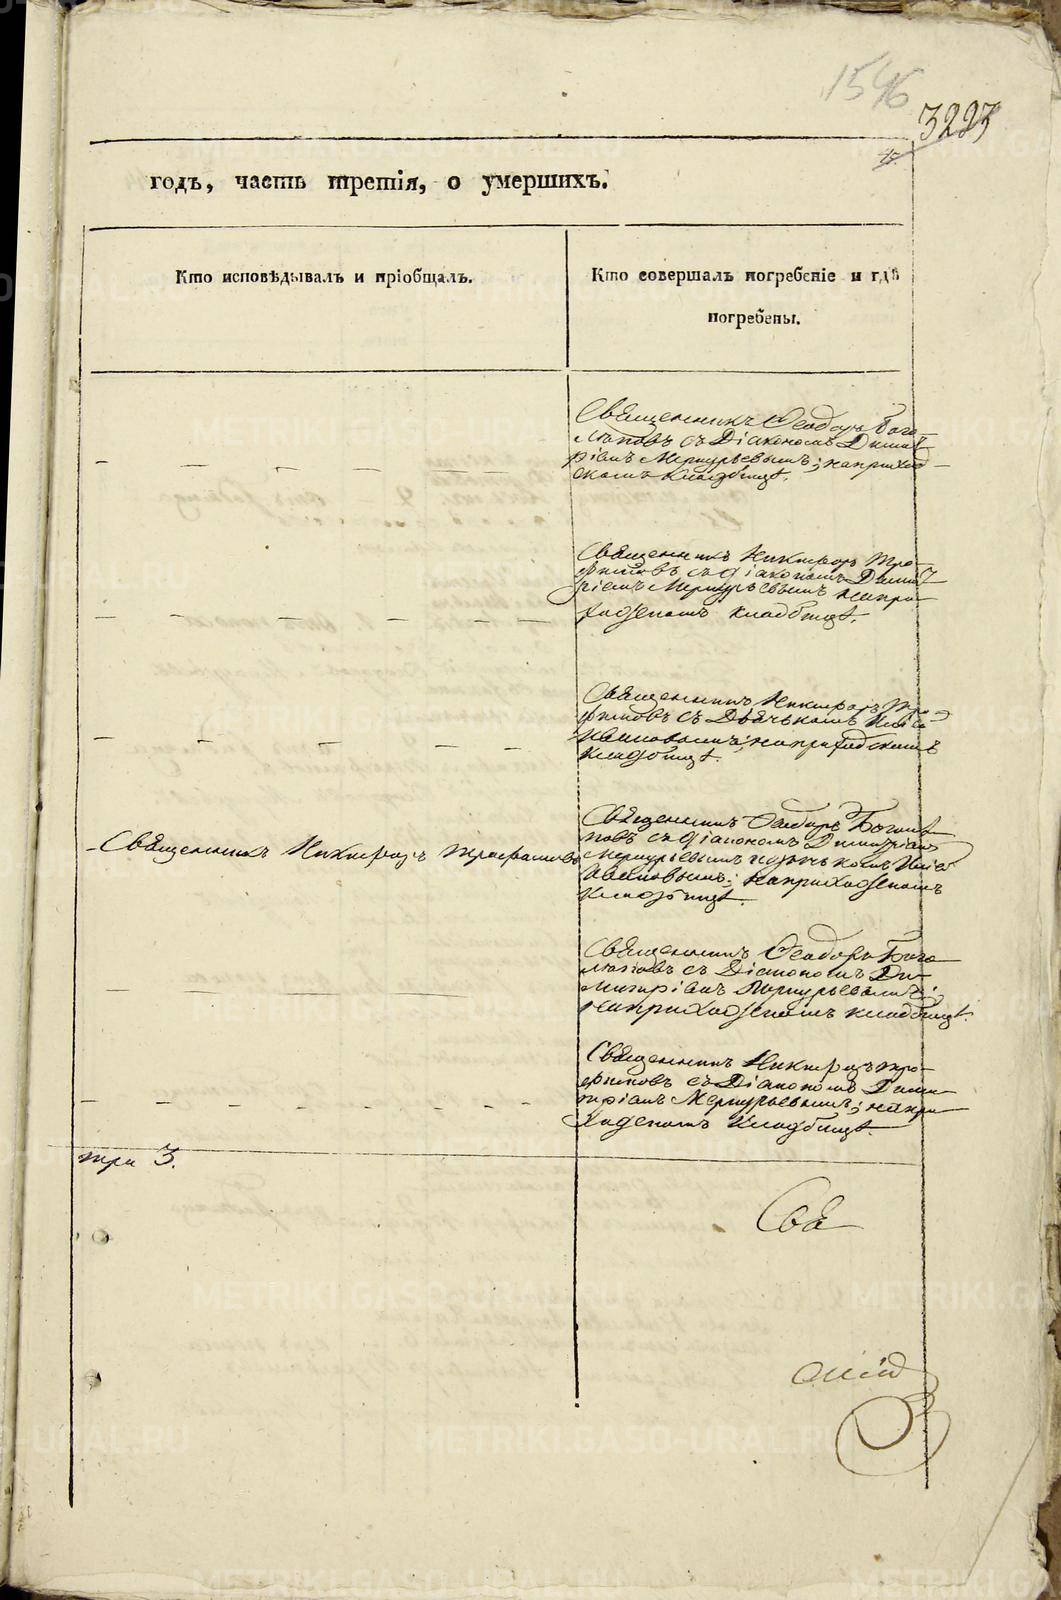 1546
3223
годъ, часть третія, о умершихъ.
Кто исповѣдывалъ и пріобщалъ.
Кто совершалъ погребеніе и гдѣ
погребены.
Священникъ Ѳеодоръ Бого-
любовъ съ Діакономъ Димит-
ріемъ Меркурьевымъ; на приход-
скомъ кладбищѣ.
Священникъ Никифоръ Тро-
фимовъ съ діакономъ Димит-
ріемъ Меркурьевымъ на при-
ходскомъ кладбищѣ.
Священникъ Никифоръ Тро-
фимовъ съ Дьячькомъ
Ивановымъ; на приходскомъ
кладбищѣ.
Священникъ Никифоръ Трофимовъ
Священникъ Ѳеодоръ Боголю-
бовъ съ діакономъ Димитріемъ
Меркурьевымъ и дьячькомъ
Ивановымъ; на приходскомъ
кладбищѣ.
Священникъ Ѳеодоръ Бого-
любовъ съ Діакономъ Ди-
митріемъ Меркурьевымъ;
на приходскомъ кладбищѣ.
Священникъ Никифоръ Тро-
фимовъ съ Діакономъ Дими-
тріемъ Меркурьевымъ; на при-
ходскомъ кладбищѣ.
три 3.
Свя
METRIKI.GASO-URAL.RU